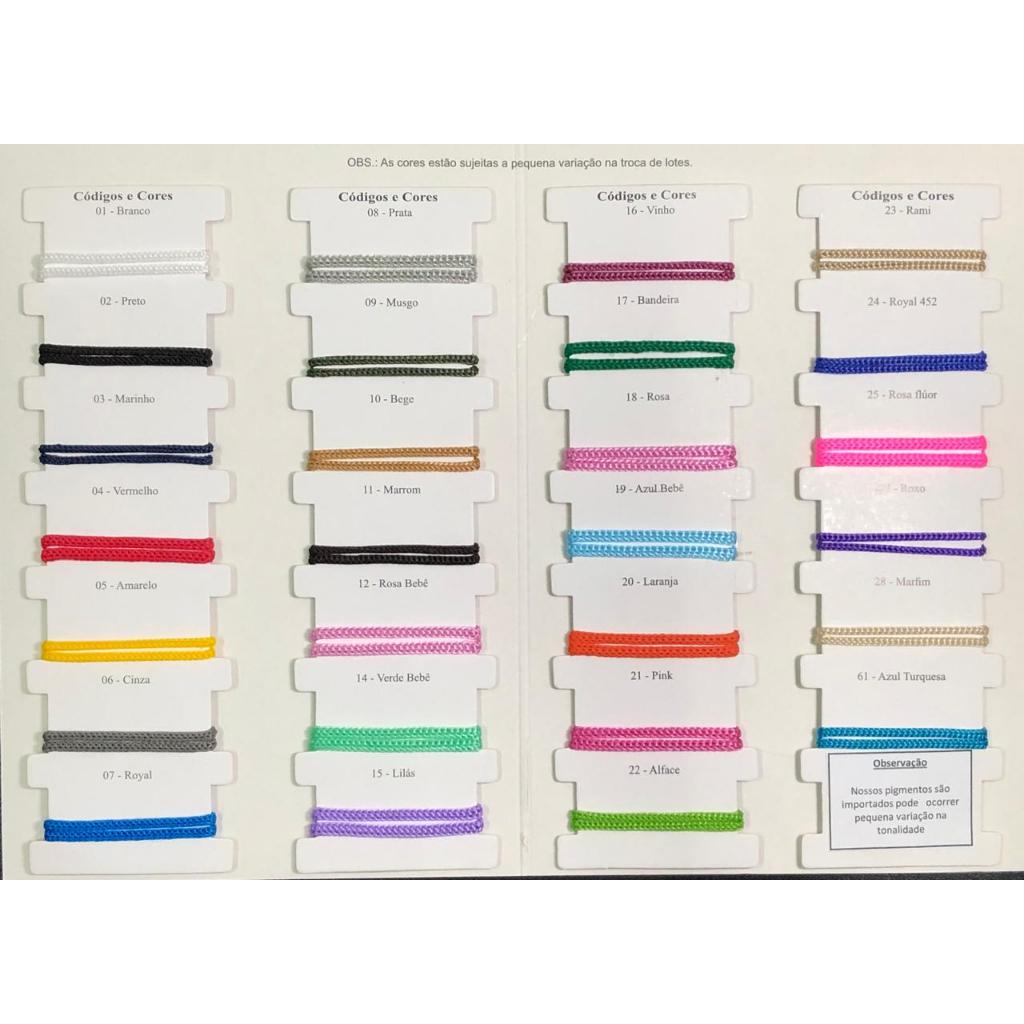 OBS.: As cores estão sujeitas a pequena variação na troca de lotes.
Códigos e Cores
01 - Branco
02 - Preto
03 - Marinho
04 - Vermelho
05 - Amarelo
06 - Cinza
07 - Royal
Códigos e Cores
08 - Prata
09 - Musgo
10 - Bege
11 - Marrom
12 - Rosa Bebê
14 - Verde Bebê
15 - Lilás
Códigos e Cores
16 - Vinho
17 - Bandeira
18 - Rosa
19 - Azul Bebê
20 - Laranja
21 - Pink
22 - Alface
Códigos e Cores
23 - Rami
24 - Royal 452
25 - Rosa flúor
- Roxo
28 - Marfim
61 - Azul Turquesa
Observação
Nossos pigmentos são
importados pode ocorrer
pequena variação na
tonalidade